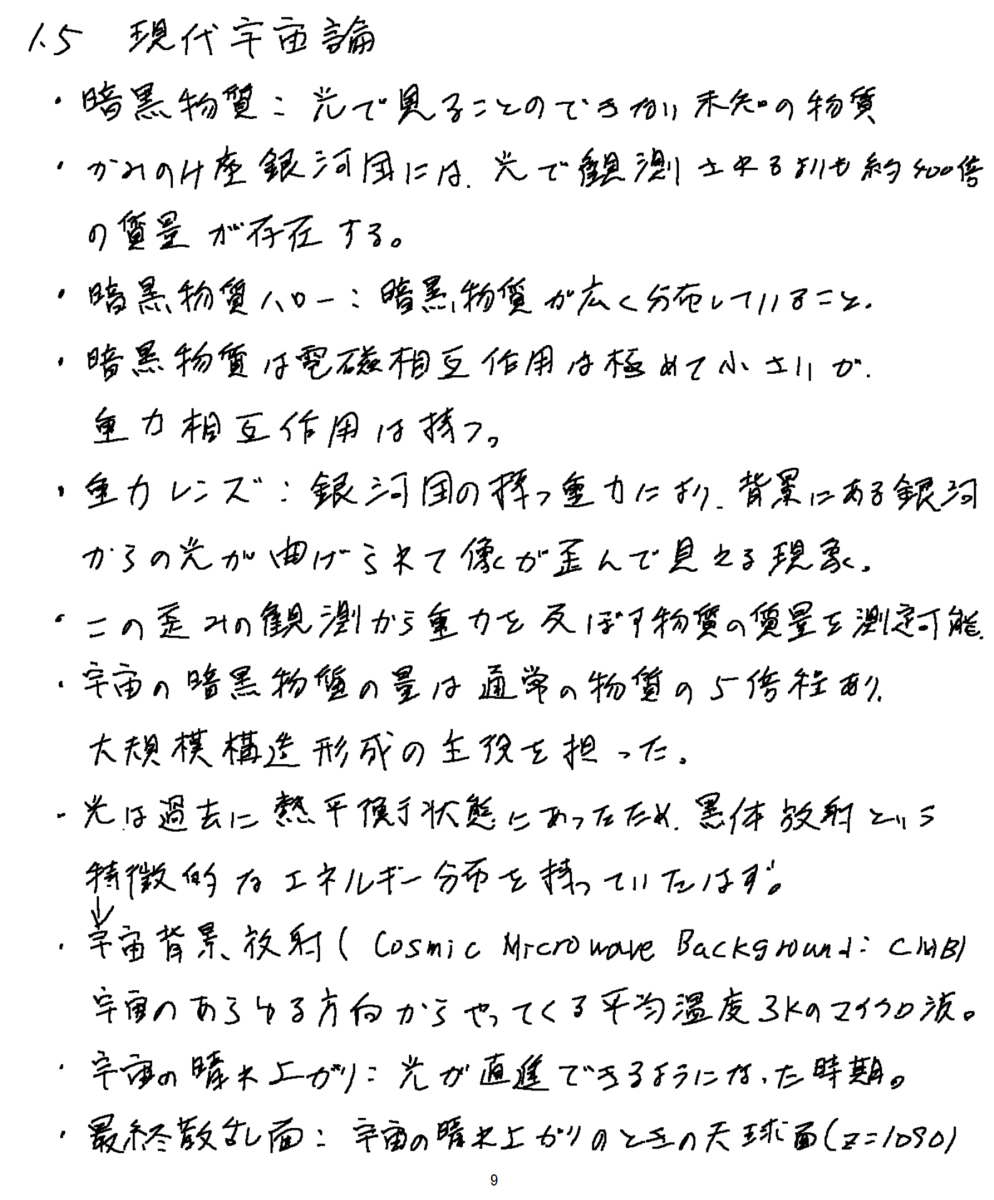 1.5 現代宇宙論
・暗黒物質：光で見ることのできない未知の物質
・かみのけ座銀河団には、光で観測されるよりも約400倍
の質量が存在する。
・暗黒物質ハロー：暗黒物質が広く分布していること。
・暗黒物質は電磁相互作用は極めて小さいが、
重力相互作用は持つ。
・重力レンズ：銀河団の持つ重力により、背景にある銀河
からの光が曲げられて像が歪んで見える現象。
・この歪みの観測から重力を及ぼす物質の質量を測定可能。
・宇宙の暗黒物質の量は通常の物質の5倍程あり、
大規模構造形成の主役を担った。
・光は過去に熱平衡状態にあったため、黒体放射という
特徴的なエネルギー分布を持っていたはず。
↓
・宇宙背景放射(Cosmic Microwave Background：CMB)
宇宙のあらゆる方向からやってくる平均温度3Kのマイクロ波。
・宇宙の晴れ上がり：光が直進できるようになった時期。
・最終散乱面：宇宙の晴れ上がりのときの天球面(z=1090)
9